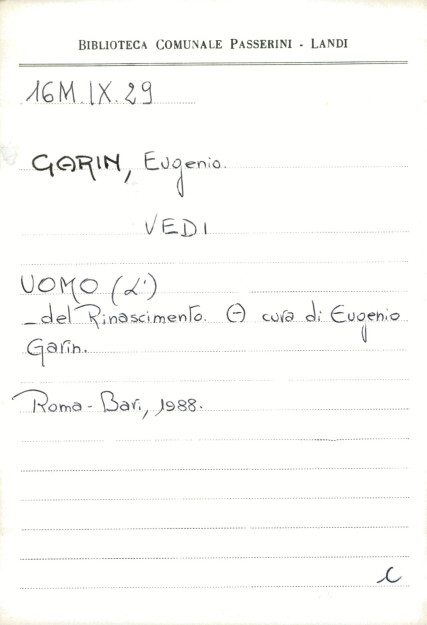 BIBLIOTECA COMUNALE PASSERINI - LANDI
16M.IX.29
GARIN, Eugenio.
VEDI
UOMO (L')
_del Rinascimento. (-) cura di Eugenio
Garin.
Roma - Bari, 1988.
C